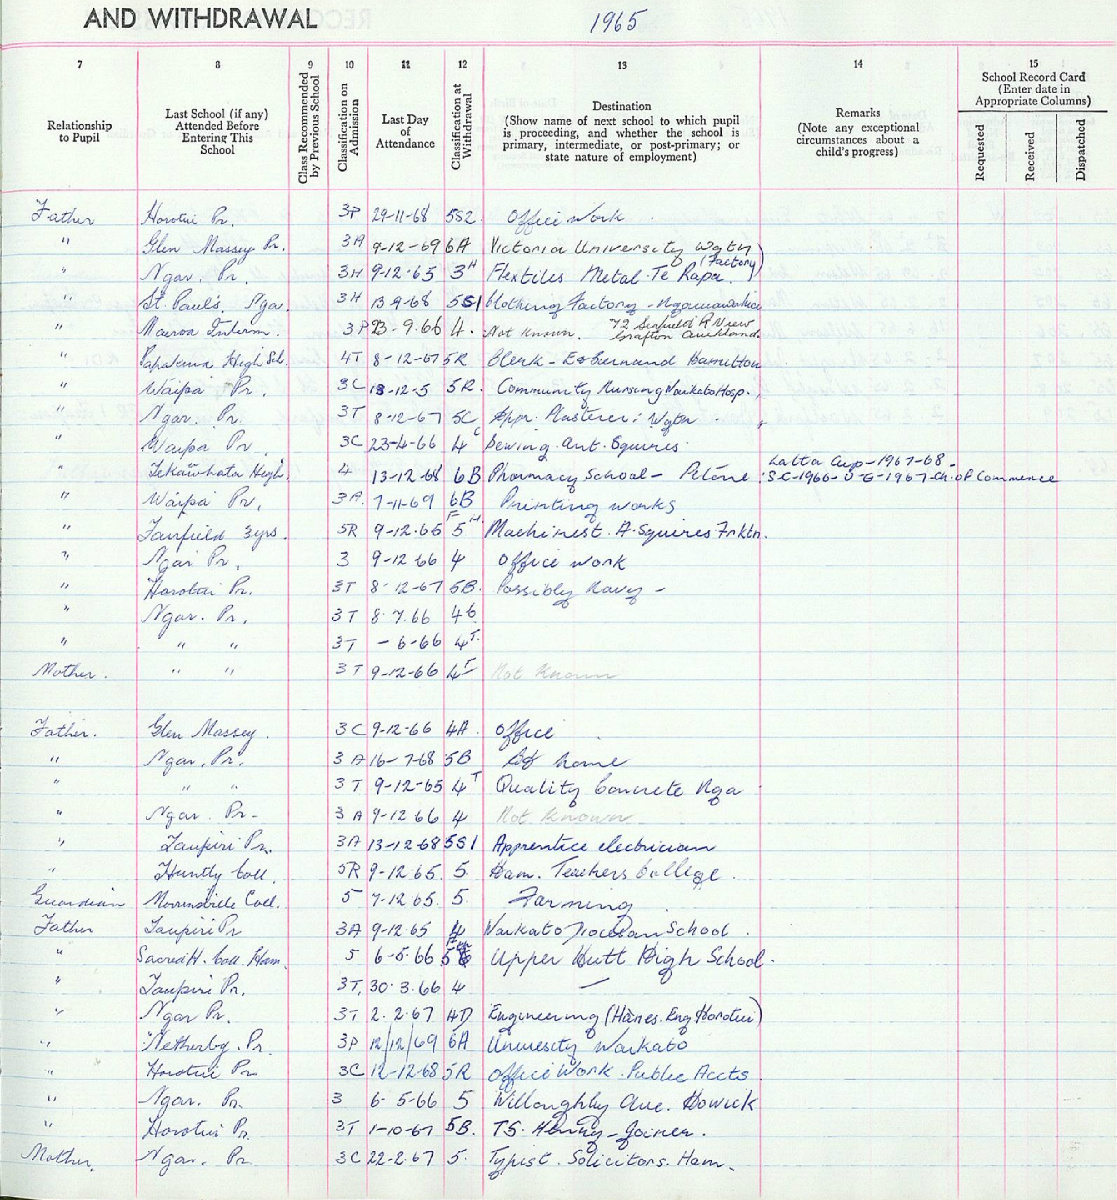 AND WITHDRAWAL 1965
7 8 9 10 11 12 13 14 15
Relationship to Pupil
Last School (if any) Attended Before Entering This School
Class Recommended by Previous School
Classification on Admission
Last Day of Attendance
Classification at Withdrawal
Destination (Show name of next school to which pupil is proceeding, and whether the school is primary, intermediate, or post-primary; or state nature of employment)
Remarks (Note any exceptional circumstances about a child's progress)
School Record Card (Enter date in Appropriate Columns)
Requested Received Dispatched
Father Horotiu Pr. 3P 29-11-68 5S2 Office work
" Glen Massey Pr. 3A 9-12-69 6A Victoria University Wgtn
" Ngar. Pr. 3H 9-12-65 3H Flextiles Metal Te Rapa. (Factory)
" St. Paul's. Nga. 3H 13-9-68 5S1 Clothing Factory - Ngaruawahia
" Interm. 3P 23-9-66 4. Not Known. 72 Seafield View Grafton Auckland.
" Papakura High Sch. 4T 8-12-67 5R Clerk - Hamilton
" Waipa Pr. 3C 13-12-5 5R. Community Nursing Waikato Hosp.
" Ngar. Pr. 3T 8-12-67 5C App. Plasterer: Wgtn
" Waipa Pr. 3C 23-4-66 4C Sewing. Ant. Squires.
" Tekauwhata High. 4 13-12-68 6B Pharmacy School - Petone Latta Cup-1967-68. S.C-1966- U-E-1967-Ch. of Commerce
" Waipa Pr. 3A. 7-11-69 6B Printing works
" Fairfield 3yrs. 5R 9-12-65 5H Machinest. A. Squires Frktn.
" Ngar Pr. 3 9-12-66 4 Office work
" Horotiu Pr. 3T 8-12-67 5B. Possibly Navy -
" Ngar. Pr. 3T 8.7.66 46
" " " 3T - 6-66 4T.
Mother. " " 3T 9-12-66 4T Not Known
Father. Glen Massey. 3C 9-12-66 4A Office.
" Ngar. Pr. 3A 16-7-68 5B At home
" " " 3T 9-12-65 4T Quality Concrete Nga
" Ngar. Pr- 3A 9-12 66 4 Not Known
" Taupiri Pr. 3A 13-12-68 5S1 Apprentice electrician
" Huntly Coll. 5R 9-12 65. 5. Ham. Teachers College.
Guardian Morrinsville Coll. 5 7-12 65. 5. Farming
Father Taupiri Pr 3A 9-12 65 4 Waikato Diocesan School.
" Sacred H. Coll. Ham. 5 6-5-66 5 Upper Hutt High School.
" Taupiri Pr. 3T, 30.3.66 4 -
" Ngar Pr. 3T 2.2.67 4D Engineering (Haines. Eng Horotiu)
" Netherby. Pr. 3P 12/12/69 6A University Waikato
" Horotiu Pr 3C 12-12-68 5R Office Work. Public Accts.
" Ngar. Pr. 3 6-5-66 5 Willoughby Ave. Howick
" Horotiu Pr. 3T 1-10-67 5B. T.S. Henry - Joiner.
Mother. Ngar. Pr. 3C 22-2-67 5. Typist. Solicitors. Ham.